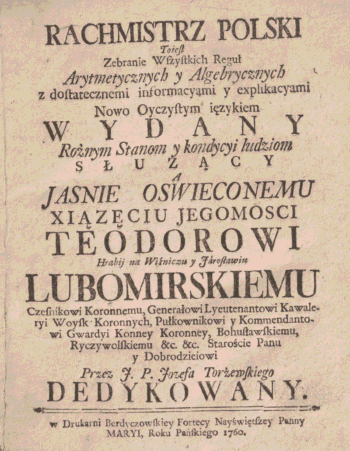 RACHMISTRZ POLSKI
Toiest
Zebranie Wszystkich Reguł
Arytmetycznych y Algebrycznych
z dostatecznemi informacyami y explikacyami
Nowo Oyczystym ięzykiem
WYDANY
Rożnym Stanom y kondycyi ludziom
SŁUŻĄCY
A
JASNIE OSWIECONEMU
XIĄZĘCIU JEGOMOSCI
TEODOROWI
Hrabij na Wiśniczu y Jarosławiu
LUBOMIRSKIEMU
Czesnikowi Koronnemu, Generałowi Lyeutenantowi Kawale-
ryi Woysk Koronnych, Pułkownikowi y Kommendanto-
wi Gwardyi Konney Koronney, Bohusławskiemu,
Ryczywolskiemu &c. &c. Staroście Panu
y Dobrodzieiowi
Przez J. P. Jozefa Torżewskiego
DEDYKOWANY.
w Drukarni Berdyczowskiey Fortecy Nayświętszey Panny
MARYI, Roku Pańskiego 1760.